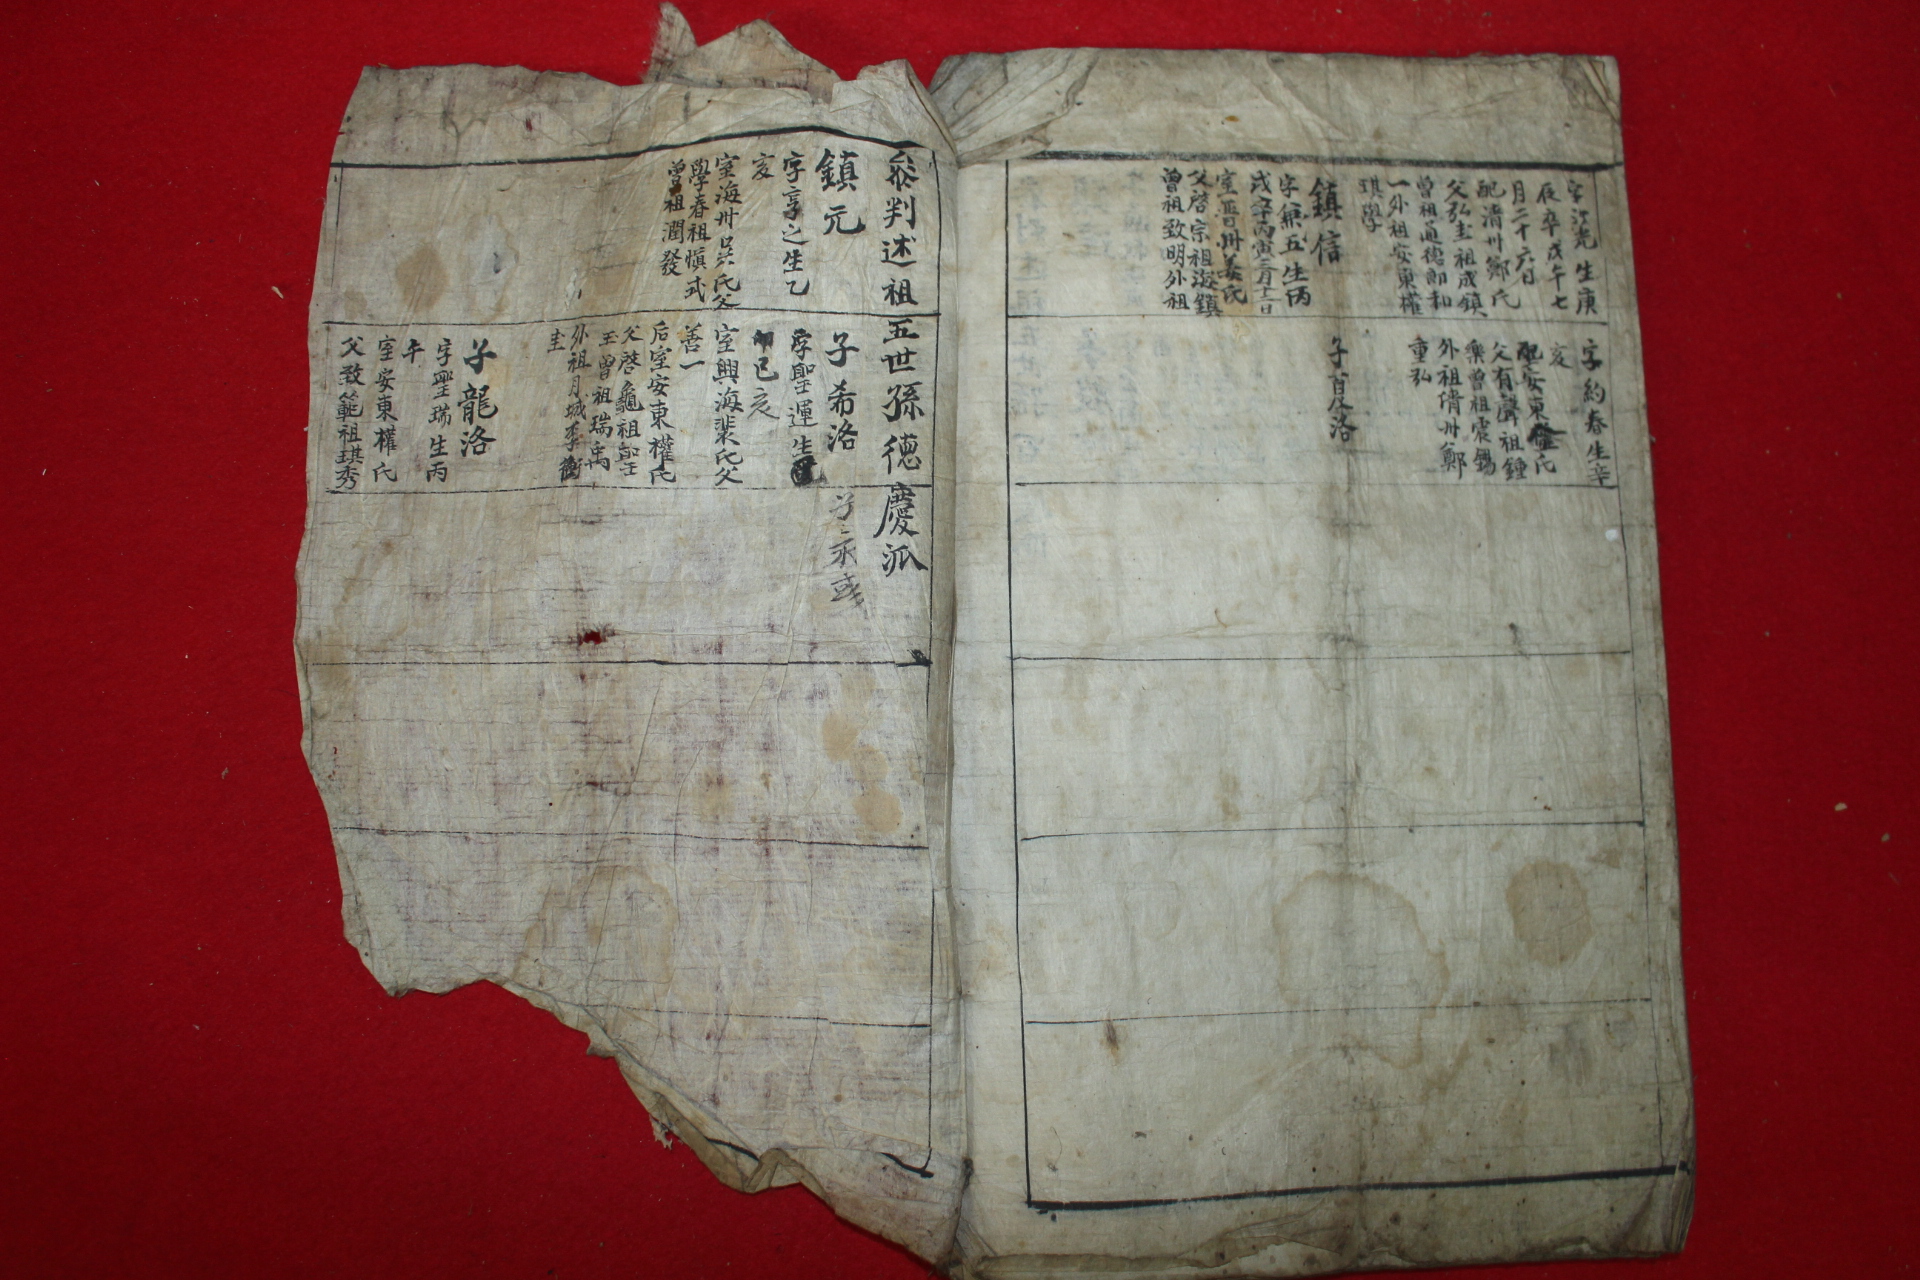 字 生庚
辰卒戊午七
月二十六日
配淸州鄭氏
父弘圭祖成鎭
曾祖 德郞和
一外祖安東權
琪學
鎮信
字兼五生丙
戌卒丙寅三月十二日
室晋州姜氏
父啓宗祖海鎮
曾祖致明外祖
字約春生辛
亥
配安東 氏
父有 祖鍾
樂曾祖震錫
外祖淸州鄭
重弘
子 洛
叅判述祖五世孫德慶派
鎮元
字亨之生乙
亥
室海州吳氏父
學春祖愼式
曾祖潤發
子希洛
字聖運生
卯己亥
室興海裴氏父
善一
后室安東權氏
父啓龜祖
玉曾祖瑞禹
外祖月城李
圭
子龍洛
字聖瑞生丙
午
室安東權氏
父致範祖琪秀
子